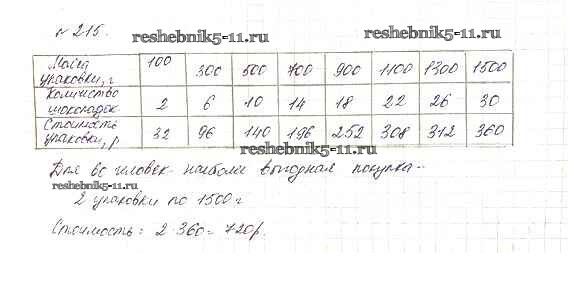 № 215.
reshebnik5-11.ru
reshebnik5-11.ru
Масса упаковки, г 100 300 500 700 900 1100 1300 1500
Количество шоколадок 2 6 10 14 18 22 26 30
Стоимость упаковки, р 32 96 140 196 252 308 312 360
reshebnik5-11.ru
Для 60 человек наиболее выгодная покупка -
reshebnik5-11.ru
2 упаковки по 1500 г
Стоимость: 2·360=720р.
reshebnik5-11.ru